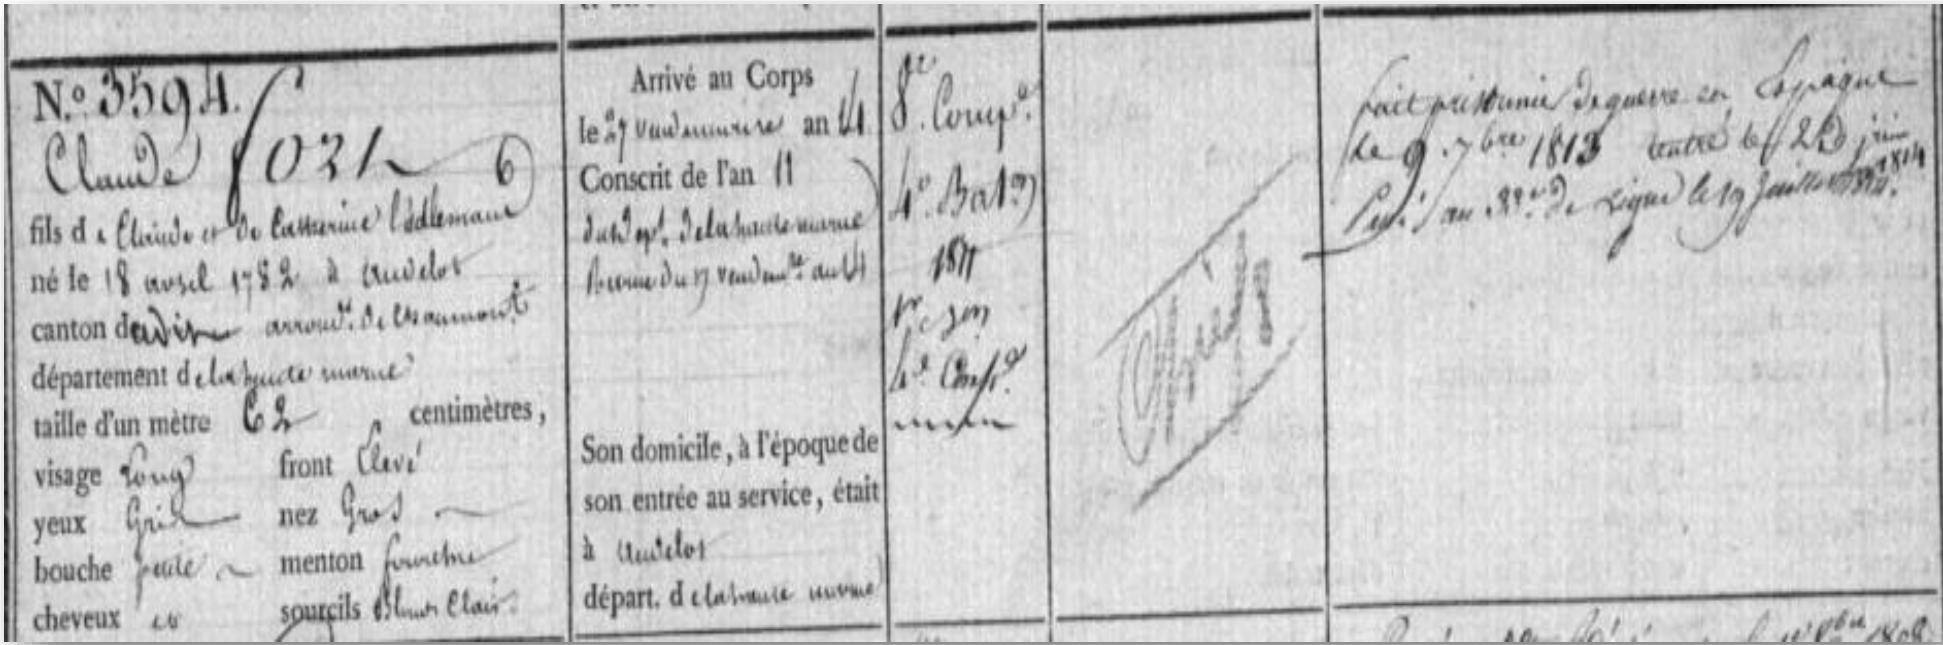 N.º 3594.
Claude
fils de Claude et de Catherine
né le 18 avril 1782 à Andelot
canton d arrond.t de Chaumont
département de la haute marne
taille d'un mètre 62 centimètres,
visage Long front Elevé
yeux Gris nez Gros
bouche petite menton fourchu
cheveux et sourcils Blonds Clair.
Arrivé au Corps
le 27 vendemiaire an 14
Conscrit de l'an 11
du dep.t de la haute marne
du 17 vend.re an 14
Son domicile, à l'époque de
son entrée au service, était
à Andelot
départ. de la haute marne
8.e Comp.e
4.e Bat.on
1811
4.e Comp.e
fait prisonnier de guerre en Espagne
Le 9. 7bre 1813 rentré le 22 juin
1814
Passé au de Ligne le 19 Juillet 1814.